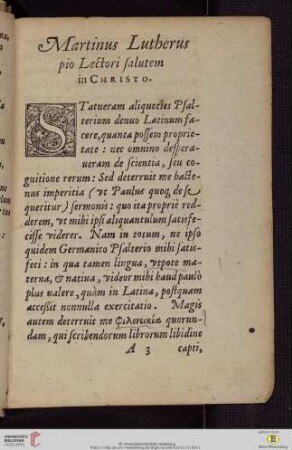 Martinus Lutherus
pio Lectori salutem
in CHRISTO.
STatueram aliquoties Psal-
terium denuo Latinum fa-
cere, quanta possem proprie-
tate: nec omnino despera-
ueram de scientia, seu co-
gnitione rerum: Sed deterruit me hacte-
nus imperitia (vt Paulus quoq, de se
queritur) sermonis: quo ita propriè red-
derem, vt mihi ipsi aliquantulum satisfe-
cisse viderer. Nam in totum, ne ipso
quidem Germanico Psalterio mihi satis-
feci: in qua tamen lingua, vtpote ma-
terna, & natiua, videor mihi haud paulò
plus valere, quàm in Latina, postquam
accessit nonnulla exercitatio. Magis
autem deterruit me quorun-
dam, qui scribendorum librorum libidine
A 3 capti,
UNIVERSITÄTS-
BIBLIOTHEK
HEIDELBERG